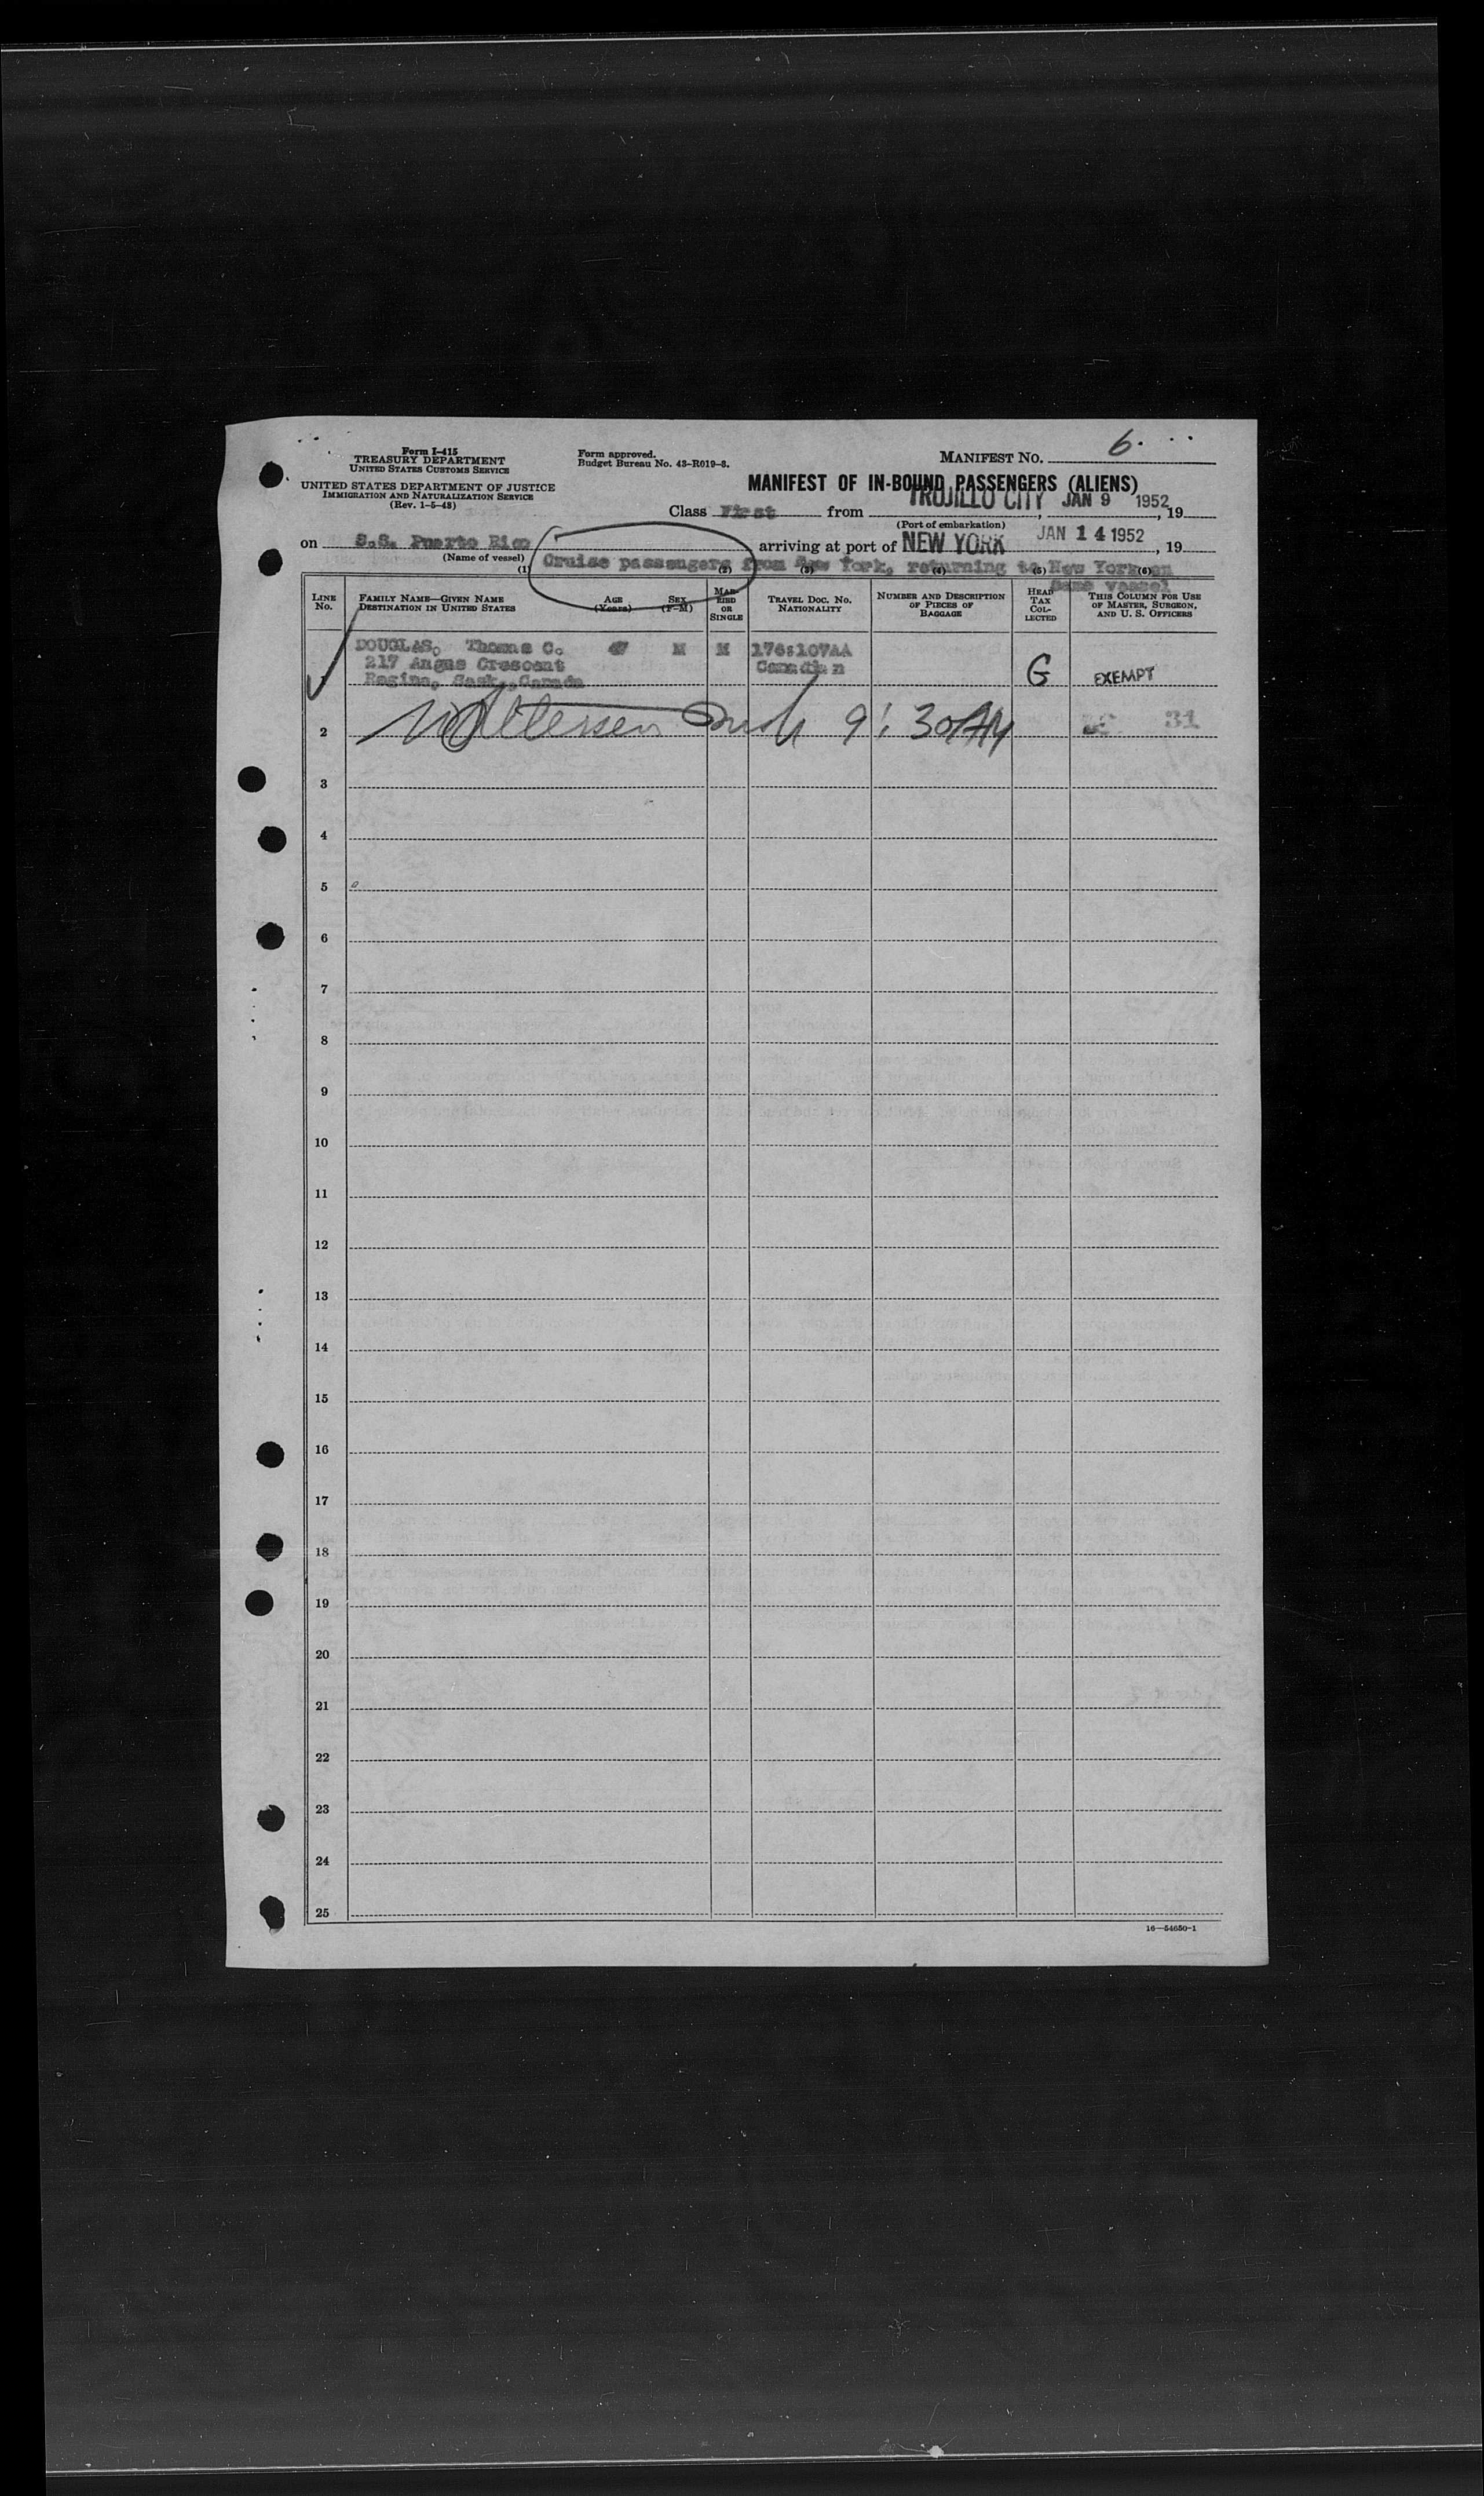 Form I-415
TREASURY DEPARTMENT
UNITED STATES CUSTOMS SERVICE
UNITED STATES DEPARTMENT OF JUSTICE
IMMIGRATION AND NATURALIZATION SERVICE
(Rev. 1-5-48)
Form approved.
Budget Bureau No. 43-R019-3.
MANIFEST NO. 6
MANIFEST OF IN-BOUND PASSENGERS (ALIENS)
Class First from TRUJILLO CITY, JAN 9 1952, 19
(Port of embarkation)
on S.S. Puerto Rico arriving at port of NEW YORK JAN 14 1952, 19
(Name of vessel)
Cruise passengers from New York, returning to New York on
same vessel
(1) (2) (3) (4) (5) (6)
LINE NO.
FAMILY NAME—GIVEN NAME
DESTINATION IN UNITED STATES
AGE (Years)
SEX (F-M)
MARRIED OR SINGLE
TRAVEL DOC. NO.
NATIONALITY
NUMBER AND DESCRIPTION OF PIECES OF BAGGAGE
HEAD TAX COLLECTED
THIS COLUMN FOR USE OF MASTER, SURGEON, AND U. S. OFFICERS
DOUGLAS, Thomas C. 47 M M 176:107AA
217 Angus Crescent Canadian G EXEMPT
Regina, Sask., Canada
2 9:30AM 31
3
4
5
6
7
8
9
10
11
12
13
14
15
16
17
18
19
20
21
22
23
24
25
16—54650-1